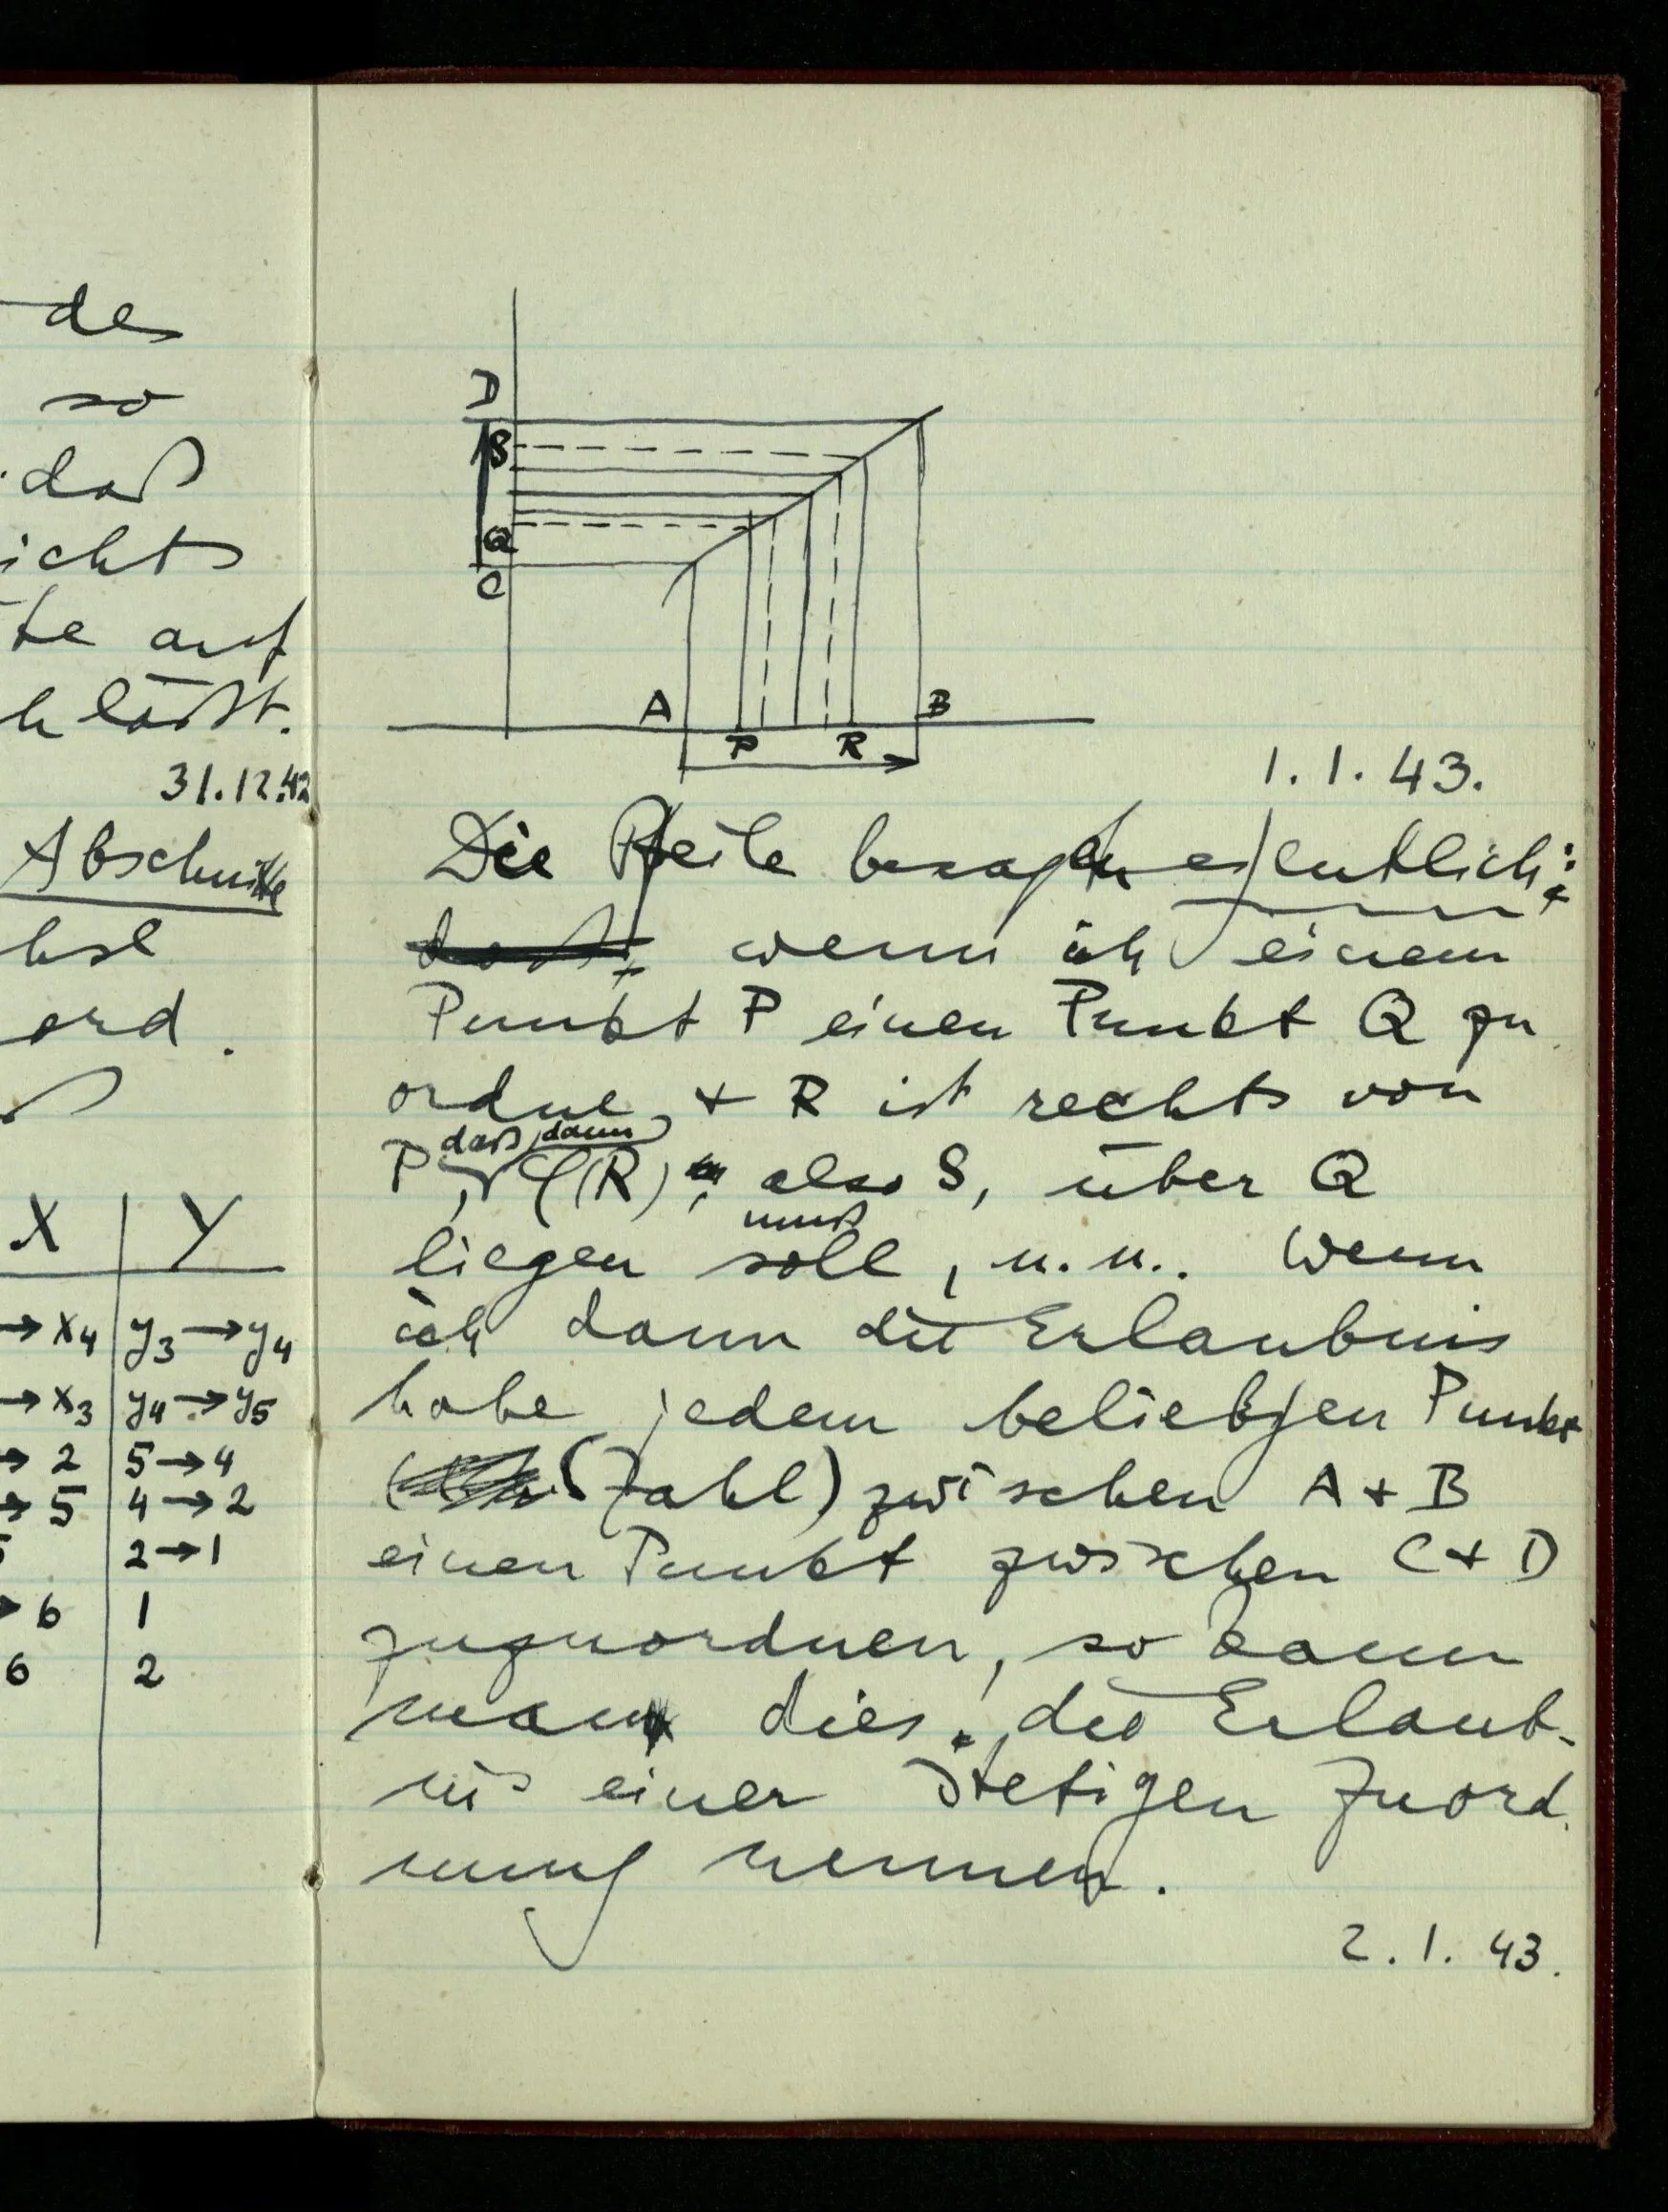 des
so
daß
ichts
te auf
h läßt.
31.12.42
Abschnitte
hsl
ord.
X | Y
→ x4 | y3 → y4
→ x3 | y4 → y5
→ 2 | 5 → 4
→ 5 | 4 → 2
5 | 2 → 1
→ 6 | 1
6 | 2
D
S
Q
C
A
B
P
R
1.1.43.
Die Pfeile besagen eigentlich:
daß, wenn ich einem
Punkt P einen Punkt Q zu
ordne, + R ist rechts von
daß, dann
P, φ(R), also S, über Q
muß
liegen soll, u.u.. Wenn
ich dann die Erlaubnis
habe jedem beliebigen Punkt
(Zahl) zwischen A + B
einen Punkt zwischen C + D
zuzuordnen, so kann
man dies, die Erlaub-
nis einer stetigen Zuord
nung nennen.
2.1.43.